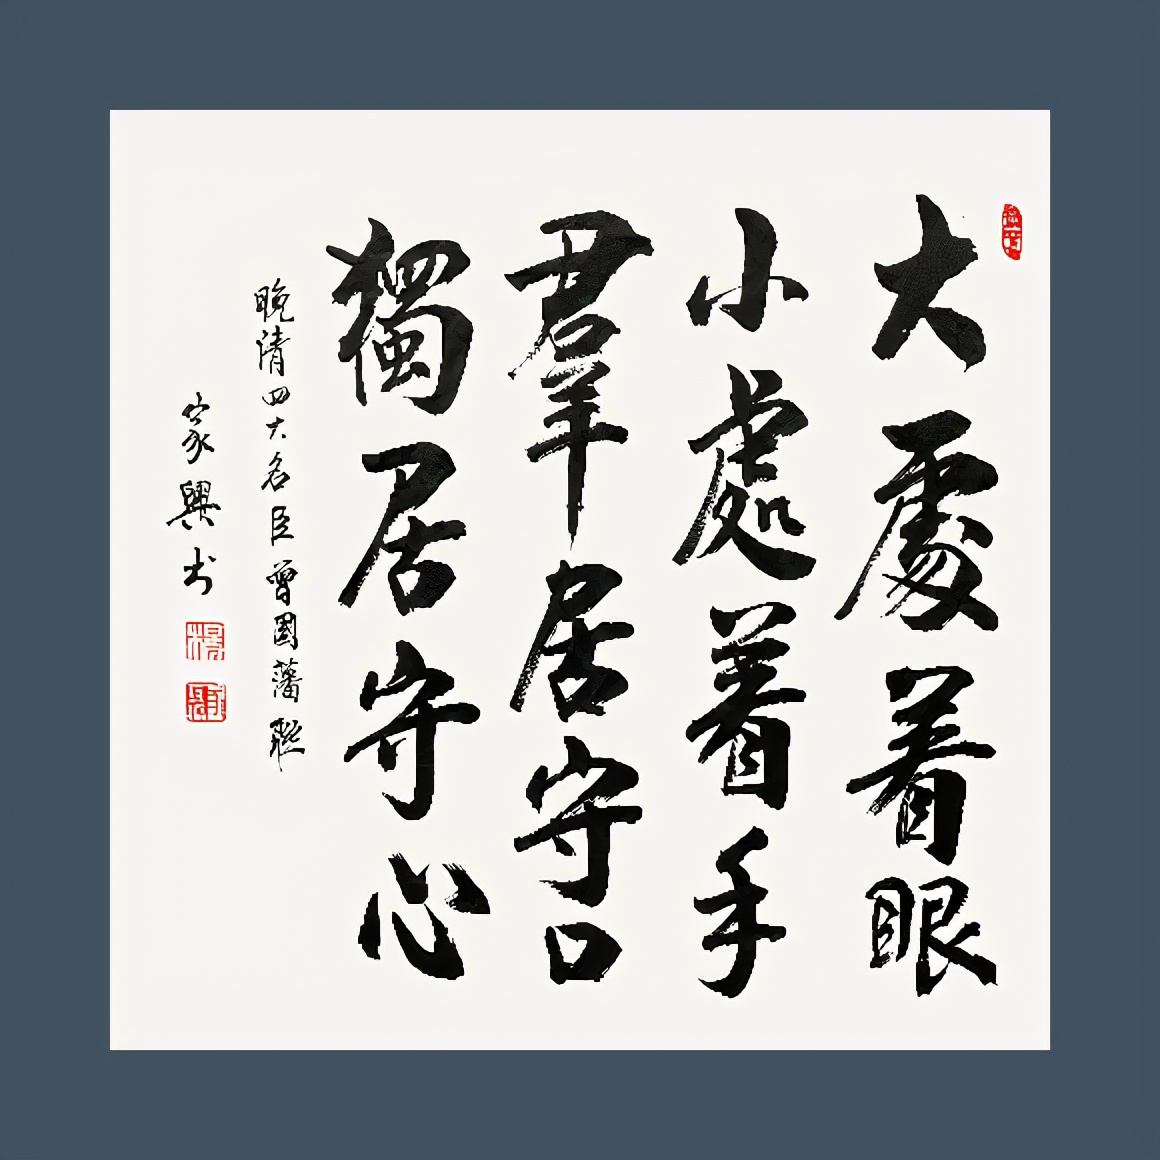 大處着眼
小處着手
羣居守口
獨居守心
晚清四大名臣曾國藩聯
家興书